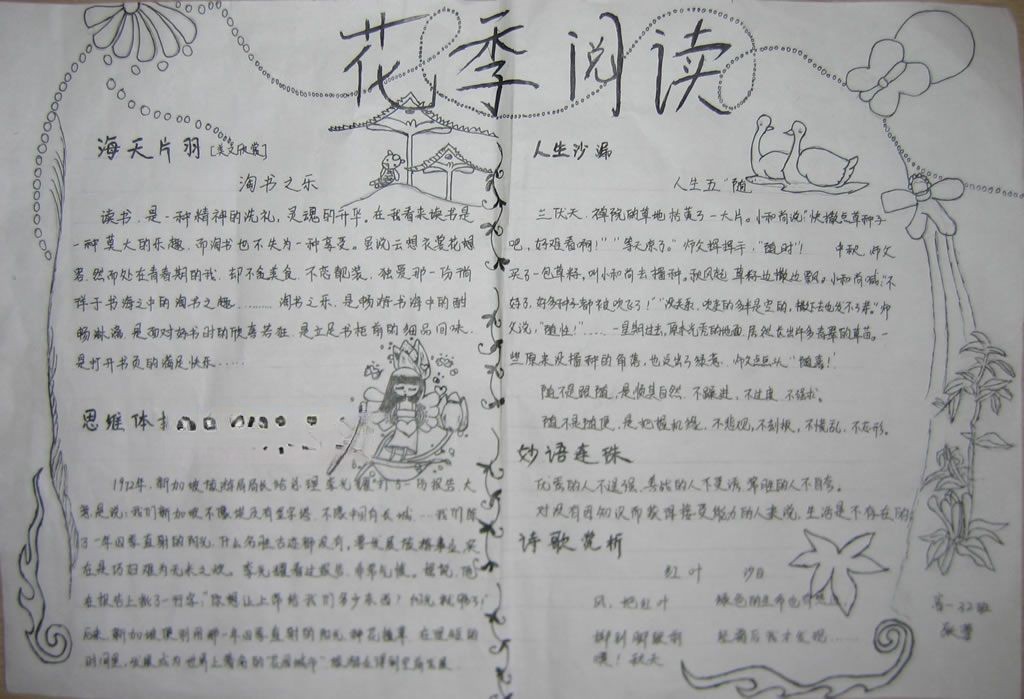 花季阅读
海天片羽[美文欣赏]
淘书之乐
读书,是一种精神的洗礼,灵魂的升华。在我看来读书是
一种莫大的乐趣,而淘书也不失为一种享受。虽说云想衣裳花想
容,然而处在青春期的我,却不贪美食,不恋靓装,独爱那一场徜
徉于书海之中的淘书之趣………淘书之乐,是畅游书海中的酣
畅淋漓,是面对好书时的欣喜若狂,是立足书柜前的细品回味,
是打开书页的满足快乐……
思维体
1972年,新加坡旅游局局长给总理李光耀打了一份报告,大
意是说:我们新加坡不像埃及有金字塔,不像中国有长城……我们除
了一年四季直射的阳光,什么名胜古迹都没有,要发展旅游事业,实
在是巧妇难为无米之炊。李光耀看过报告,非常气愤。据说,他
在报告上批了一行字:"你想让上帝给我们多少东西?阳光就够了!"
后来,新加坡便利用那一年四季直射的阳光,种花植草,在很短的
时间里,发展成为世界上著名的"花园城市"
人生沙漏
人生五"随"
三伏天,禅院的草地枯黄了一大片。小和尚说"快撒点草种子
吧,好难看啊!""等天凉了。"师父挥挥手,"随时"! 中秋,师父
买了一包草籽,叫小和尚去播种。秋风起,草籽边撒边飘。小和尚喊:"不
好了,好多种子都被吹飞了!""没关系,吹走的多半是空的,撒下去也发不了芽。"师
父说,"随性!"……一星期过去,原本光秃的地面,居然长出许多青翠的草苗。一
些原来没播种的角落,也泛出了绿意。师父点点头"随喜!"
随不是跟随,是顺其自然,不躁进,不过度,不强求。
随不是随便,是把握机缘,不悲观,不刻板,不慌乱,不忘形。
妙语连珠
优秀的人不逞强,善战的人不 常胜的人不自夸。
对没有因知识而获得接受能力的人来说,生活是不存在的
诗歌赏析
红叶 沙白
风,把红叶 绿色的生命也
掷到脚跟前 经霜后我才发现……
噢!秋天
高一32班